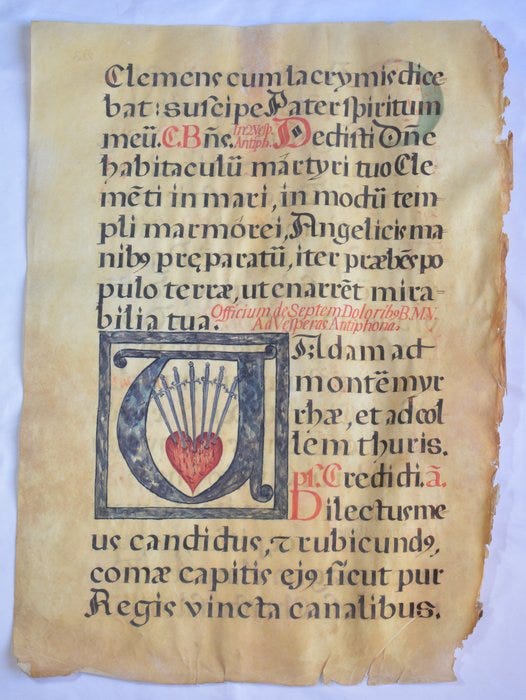 Clemens cum lacrymis dice
bat: suscipe Pater spiritum
meū. C. Bñe. In 2. Vesp. Antiph. Dedisti Dñe
habitaculū mártyri tuo Cle
mēti in mari, in modū tem
pli marmórei, Angelicis ma
nibꝰ prępáratū, iter præbēs po
pulo terræ, ut enarrēt mira-
bilia tua. Officium de Septem Doloribꝰ B.M.V.
Ad Vesperas Antiphona.
Vadam ad
montē myr
rhæ, et ad col
lem thuris.
ps. Credidi. ã.
Dilectus me
us candidus, ⁊ rubicundꝰ,
comæ capitis ejꝰ sicut pur
Regis vincta canalibus.